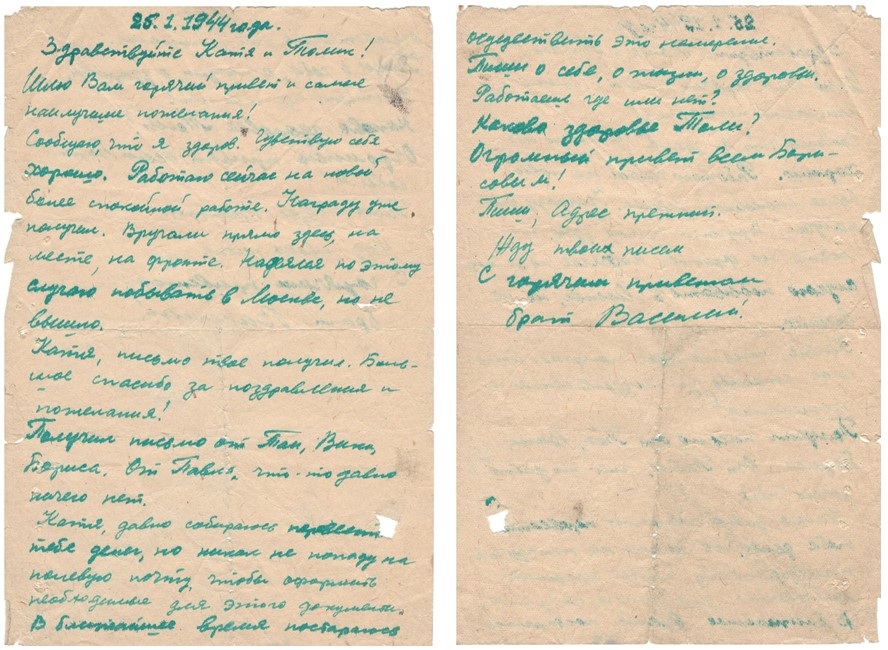 25.1.1944 года.
Здравствуйте Катя и Толик!
Шлю Вам горячий привет и самые
наилучшие пожелания!
Сообщаю, что я здоров. Чувствую себя
хорошо. Работаю сейчас на новой
более спокойной работе. Награду уже
получил. Вручали прямо здесь, на
месте, на фронте. Надеялся по этому
случаю побывать в Москве, но не
вышло.
Катя, письмо твое получил. Боль-
шое спасибо за поздравления и
пожелания!
Получил письмо от Таи, Вики,
Бориса. От Павла, что-то давно
ничего нет.
Катя, давно собираюсь перевести
тебе денег, но никак не попаду на
полевую почту, чтобы оформить
необходимые для этого документы.
В ближайшее время постараюсь
осуществить это намерение.
Пиши о себе, о жизни, о здоровьи.
Работаешь где или нет?
Каково здоровье Толи?
Огромный привет всем Бори-
совым!
Пиши, Адрес прежний.
Жду твоих писем
С горячим приветом
брат Василий.